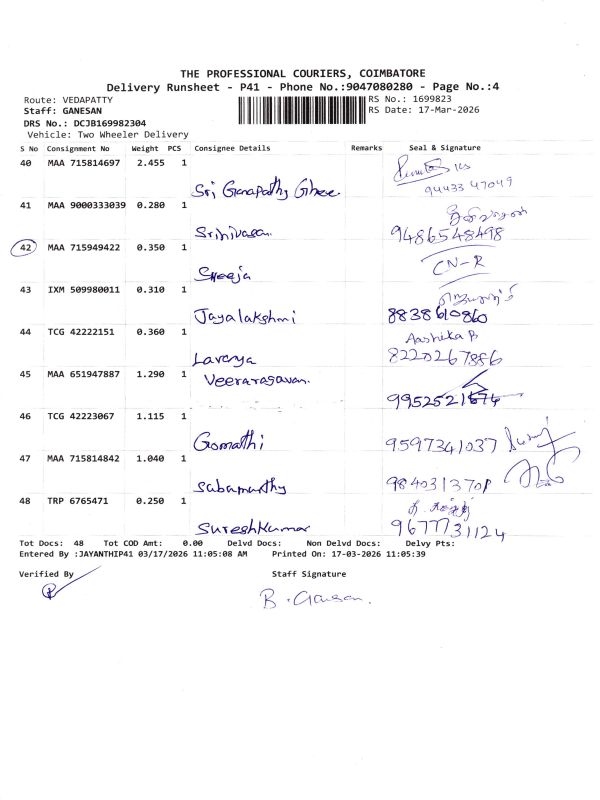 THE PROFESSIONAL COURIERS, COIMBATORE
Delivery Runsheet - P41 - Phone No.:9047080280 - Page No.:4
Route: VEDAPATTY
RS No.: 1699823
Staff: GANESAN
RS Date: 17-Mar-2026
DRS No.: DCJB169982304
Vehicle: Two Wheeler Delivery
S No Consignment No Weight PCS Consignee Details Remarks Seal & Signature
40 MAA 715814697 2.455 1
Sri Ganapathy Ghee 94433 47049
41 MAA 9000333039 0.280 1
Srinivasan 9486548498
42 MAA 715949422 0.350 1
Sheeja CN-R
43 IXM 509980011 0.310 1
Jayalakshmi 8838610860
44 TCG 42222151 0.360 1 Aashika B
Lavanya 8220267886
45 MAA 651947887 1.290 1 Veeraragavan.
9952521674
46 TCG 42223067 1.115 1
Gomathi 9597341037
47 MAA 715814842 1.040 1
Sabamurthy 9840313701
48 TRP 6765471 0.250 1
Sureshkumar 9677731124
Tot Docs: 48 Tot COD Amt: 0.00 Delvd Docs: Non Delvd Docs: Delvy Pts:
Entered By :JAYANTHIP41 03/17/2026 11:05:08 AM Printed On: 17-03-2026 11:05:39
Verified By Staff Signature
B. Ganesan.